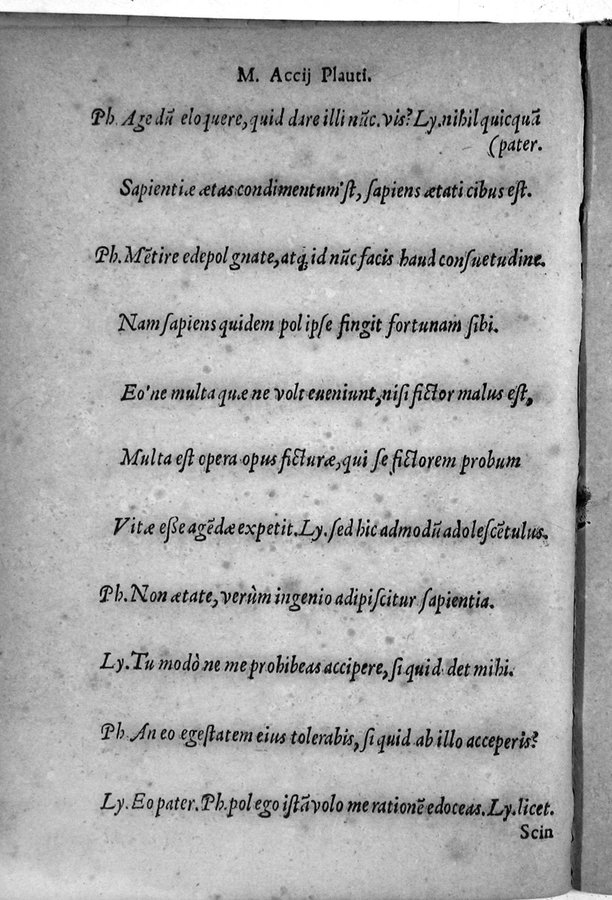 M. Accij Plauti.
Ph. Age dũ eloquere, quid dare illi nũc. vis? Ly. nihil quicquã
(pater.
Sapientiæ ætas condimentum'st, sapiens ætati cibus est.
Ph. Mẽtire edepol gnate, atq; id nũc facis haud consuetudine.
Nam sapiens quidem pol ipse fingit fortunam sibi.
Eo'ne multa quæ ne volt eueniunt, nisi fictor malus est,
Multa est opera opus ficturæ, qui se fictorem probum
Vitæ eße agẽdæ expetit. Ly. sed hic admodũ adolescẽtulus.
Ph. Non ætate, verùm ingenio adipiscitur sapientia.
Ly. Tu modò ne me prohibeas accipere, si quid det mihi.
Ph. An eo egestatem eius tolerabis, si quid ab illo acceperis?
Ly. Eo pater. Ph. pol ego istã volo me rationẽ edoceas. Ly. licet.
Scin